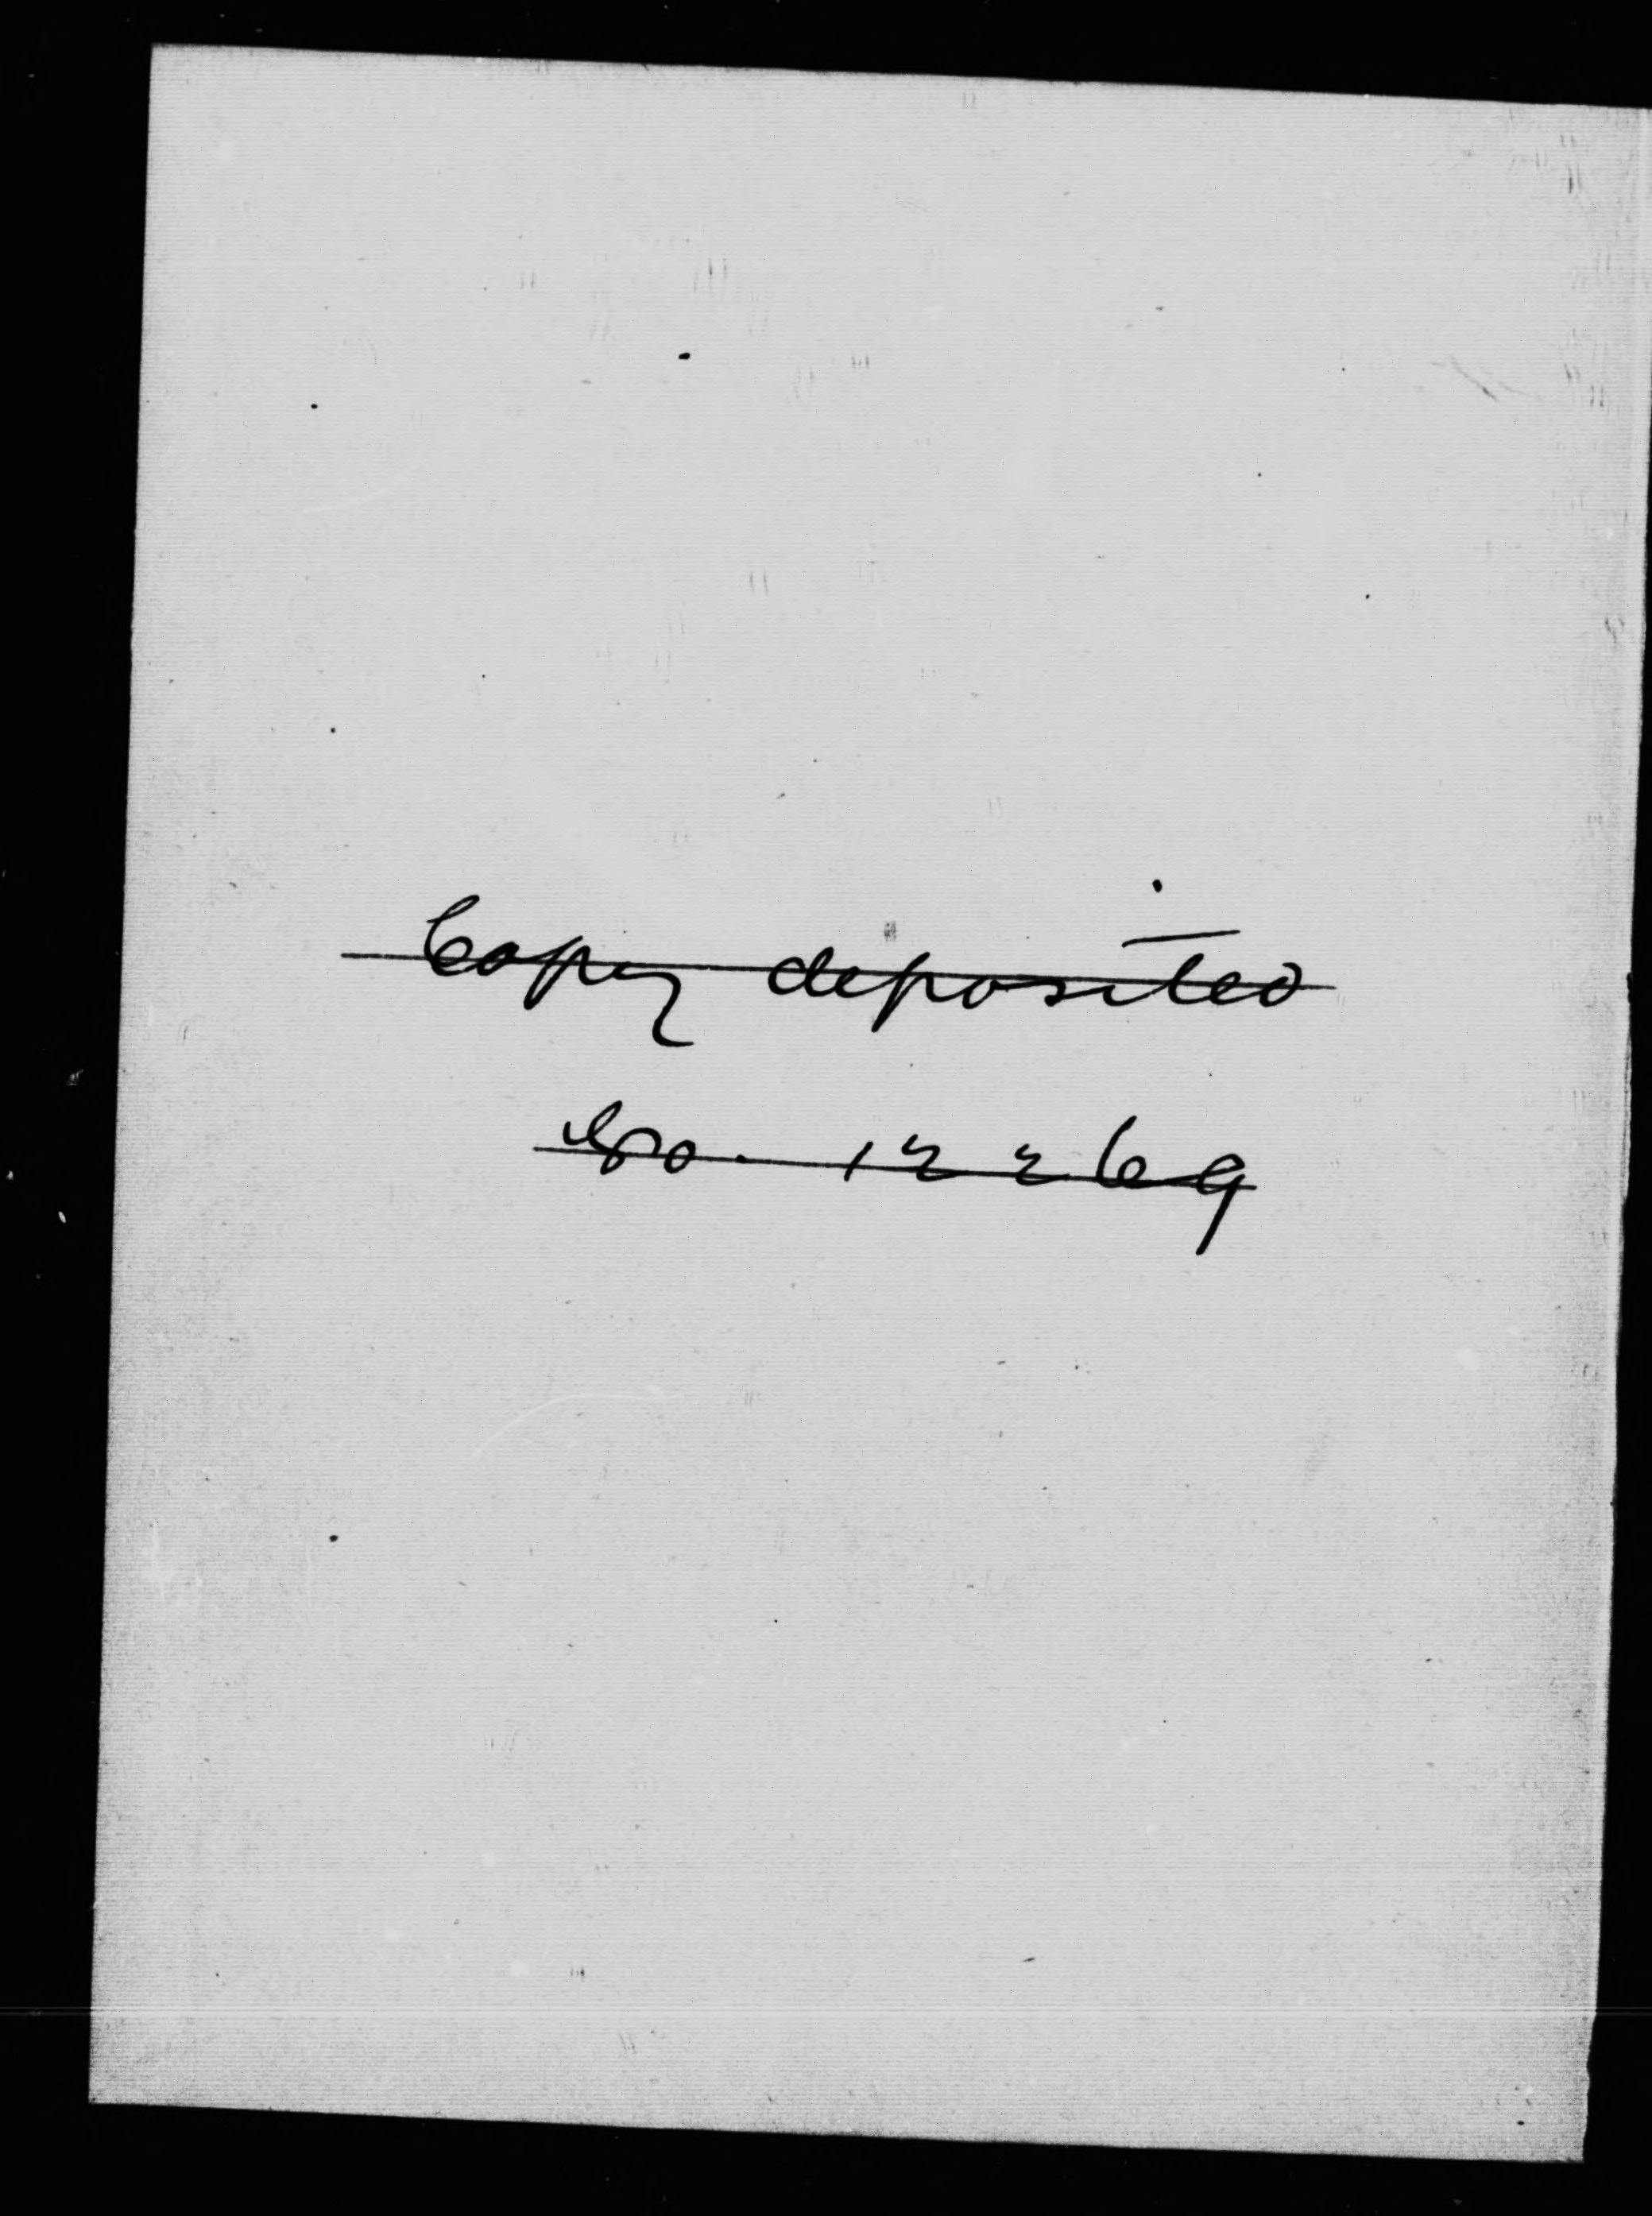 Copy deposited
No. 12269